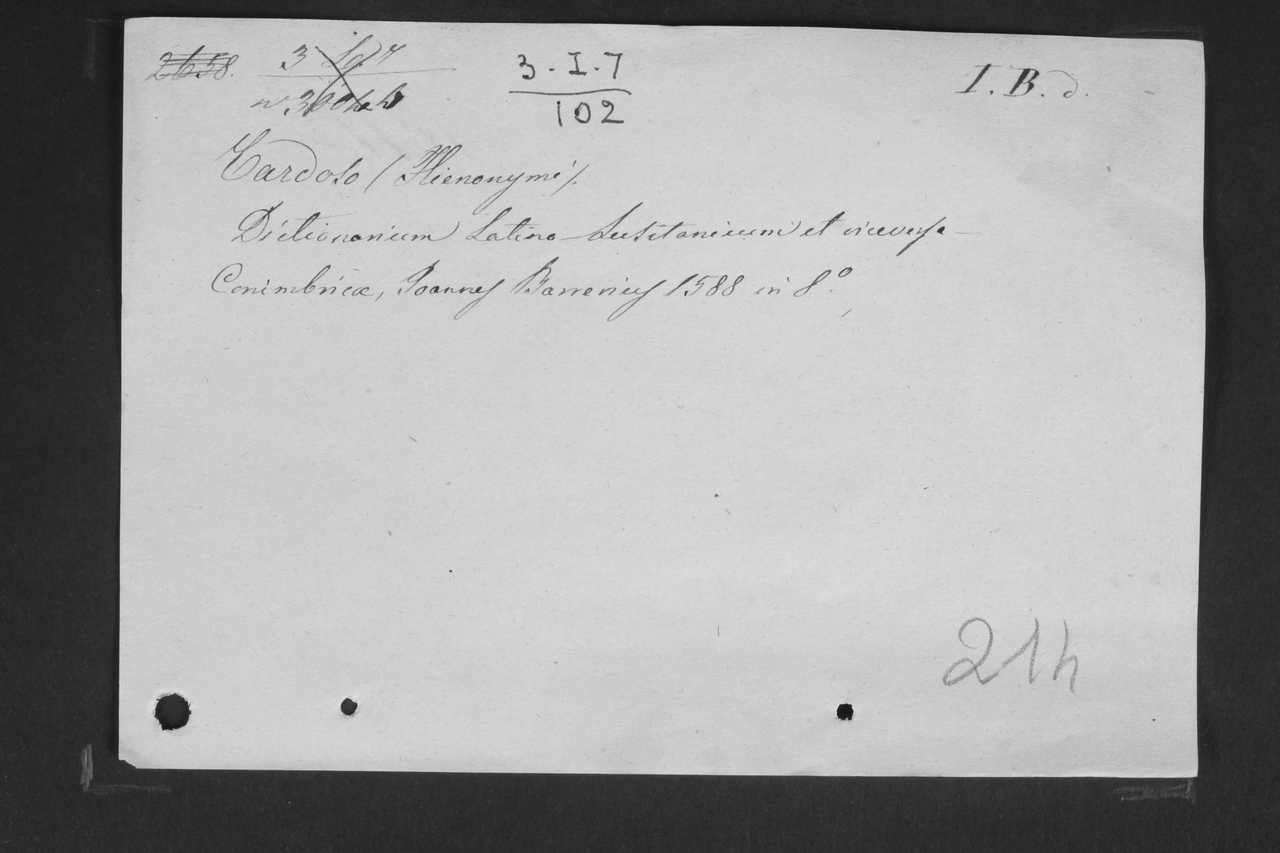 2658.
3 
3-I-7
102
I. B. d.
Cardoso (Hieronymi).
Dictionarium Latino-Lusitanicum et viceversa—
Conimbricæ, Joannes Barrerius 1588 in 8.º,
214